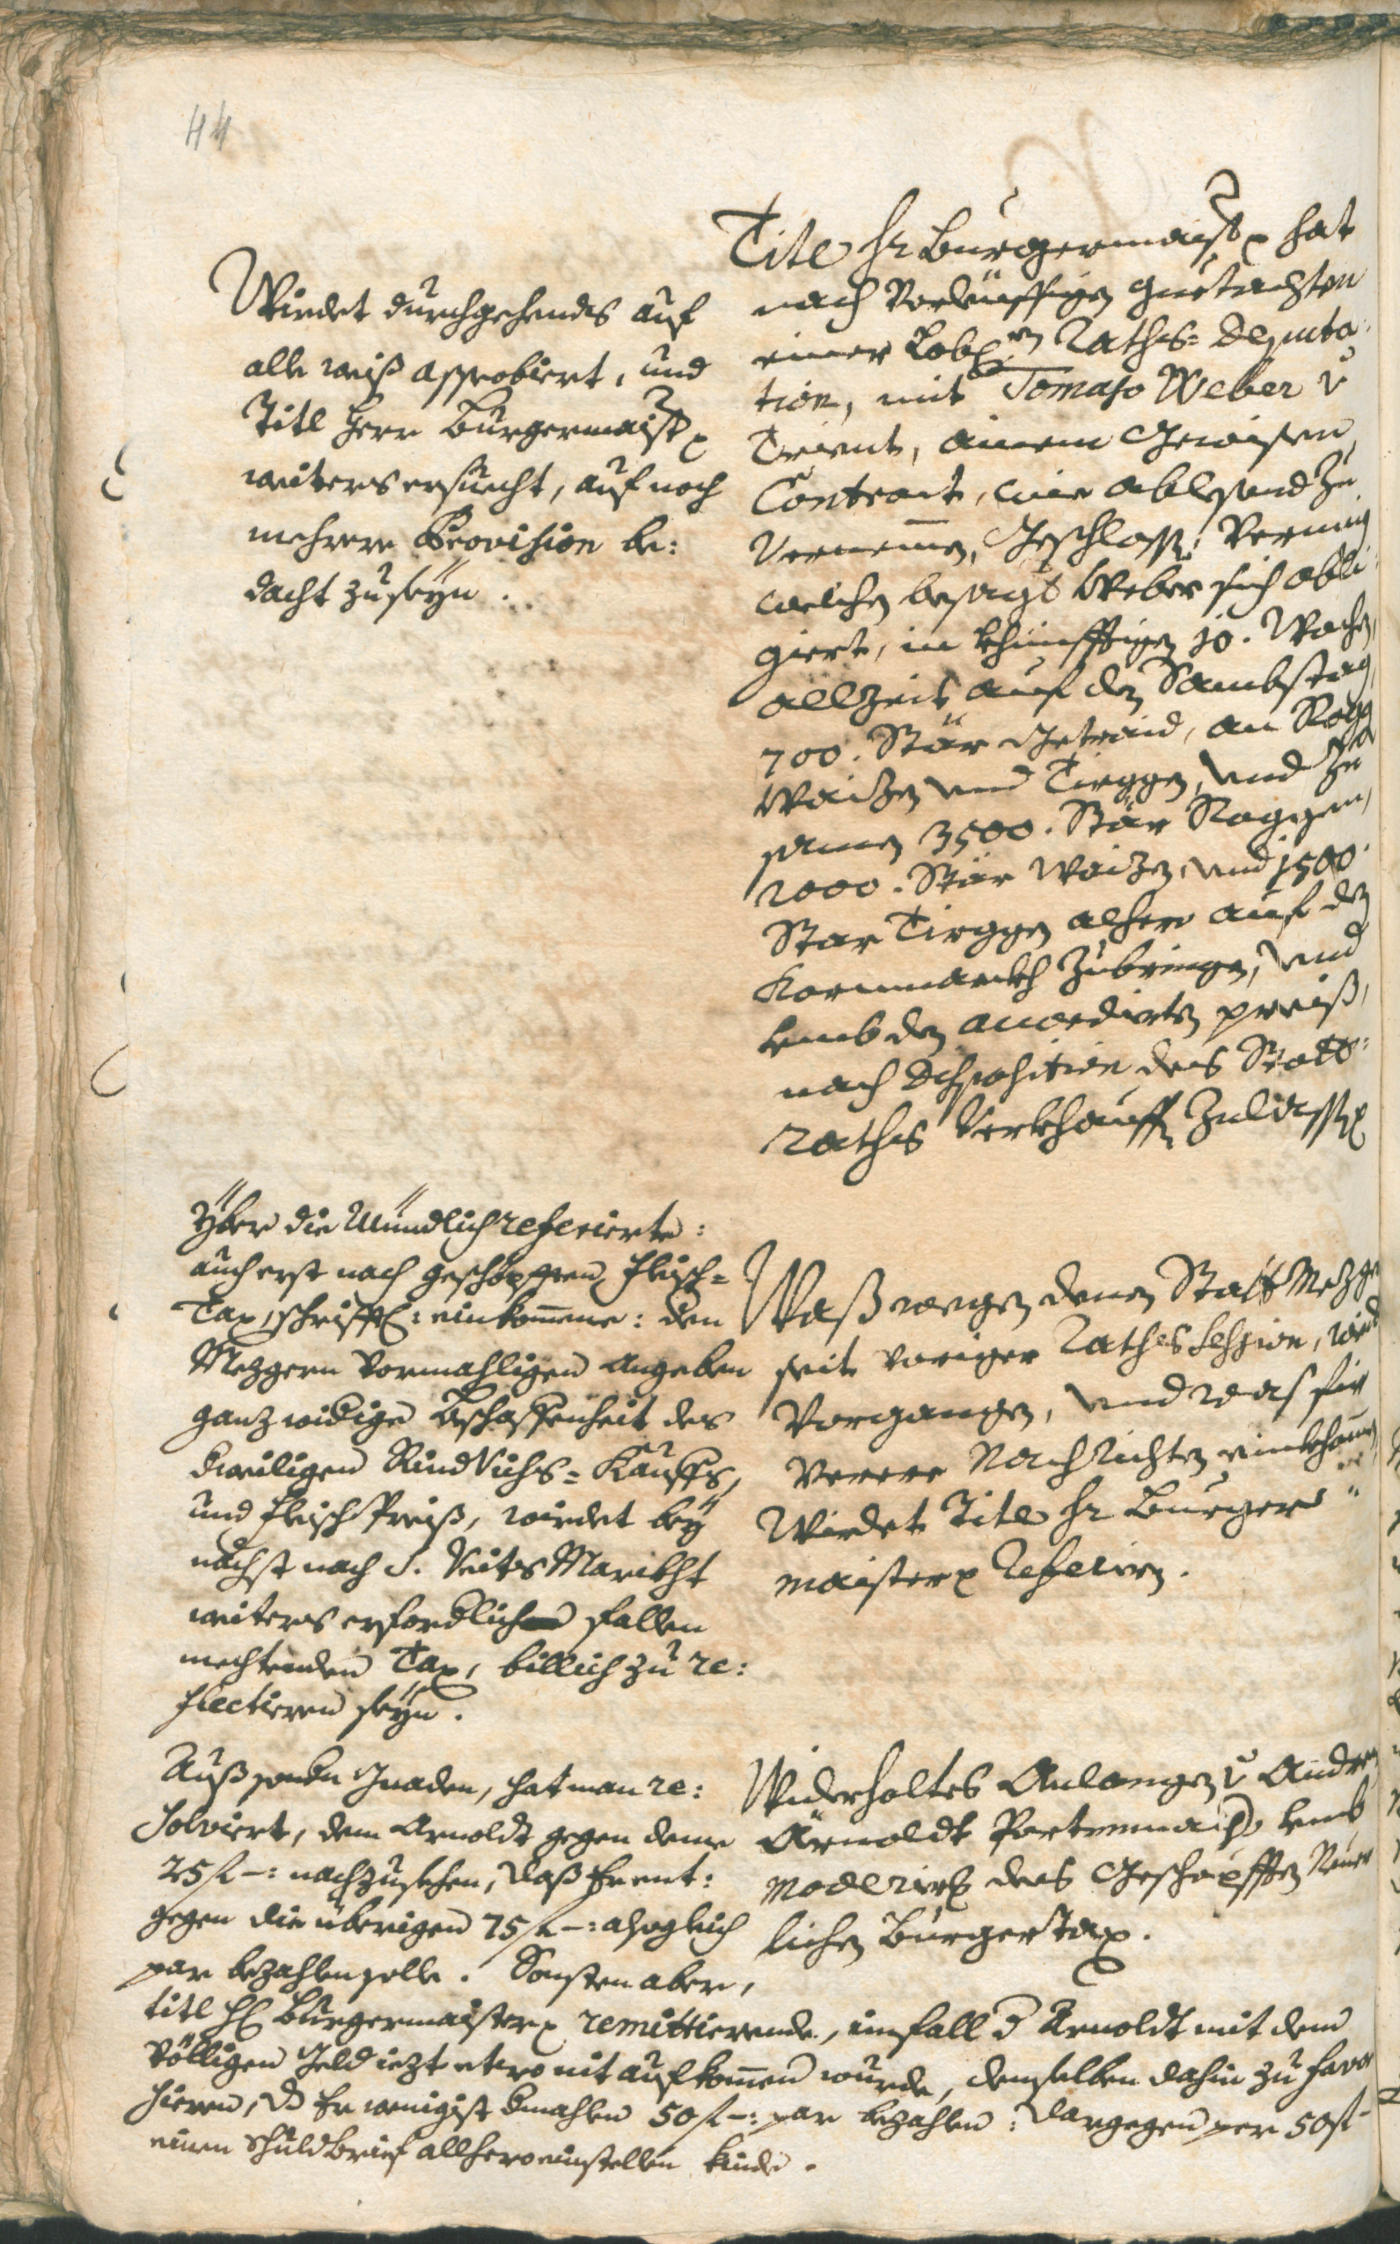 44
Titl Hr Burgermaistr hat
nach Vorleuffigen guetachten
einer Lobl. Raths= Deputa:
tion, mit Tomaso Weber v
Trient, ainem Gewissen
Contract, wie ablesend zu
Vernemen, Geschlossen: Vermig
welchen besagt Weber sich obli:
giert, in khünfftigen 10. Wochen,
allzeit auf den Sambstag,
700. Stär Getraid, an Rogg
Waizen und Tirggen, und zu
samen 3500. Stär Roggen,
2000. Stär Waizen, und 1500.
Star Tirggen alhero auf den
Kornmarckh zubringen, und
umb den accordirten preiß,
nach Disposition des Statt=
raths Verkhauffen zulassen
Wirdet durchgehends auf
alle weiß approbiert, und
Titl Herr Burgermaistr
weiters ersuecht, auf noch
mehrere Provision be:
dacht zu seyn.
Waß wegen denen Statt Mezge
seit voriger Raths Session, wird
Vorgangen, und was für
Verere Nachrichten einkhomen,
Wirdet Titl Hr Burger=
maister referirn.
Yber die Mündlich referierte:
auch erst nach geschöpfften Fleisch=
Tax, schrifftl: einkommene: den
Mezgern vormahligen angeben
ganz widige Beschaffenheit des
dmeiligen Rindvichs= Kauffs,
und fleisch Preiß, wirdet bey
nächst nach S. Veits Marckht
weiters erfordlich fallen
mechtenden Tax, billich zu re:
flectieren seyn.
Widerholtes Anlangen v Andre
Arnoldt Portenmacher umb
moderirung des Geschöpfften Neuer
lichen Burger Tax.
Auß sonderen Gnaden, hat man re:
solviert, dem Arnoldt gegen deme
25 f –: nachzusehen, daß Er ent:
gegen die überigen 75 f –: alsogleich
par bezahlen solle. Sonsten aber,
titl H Burgermaister remittierende, imfall d Arnoldt mit dem
völligen Geld iezt etwo nit aufkommen wurde, demselben dahin zu favo
risieren, dz Er wenigist dmahlen 50 f –: par bezahlen: dargegen per 50 f –
einen Schuldbrief allhero einstellen kinde.